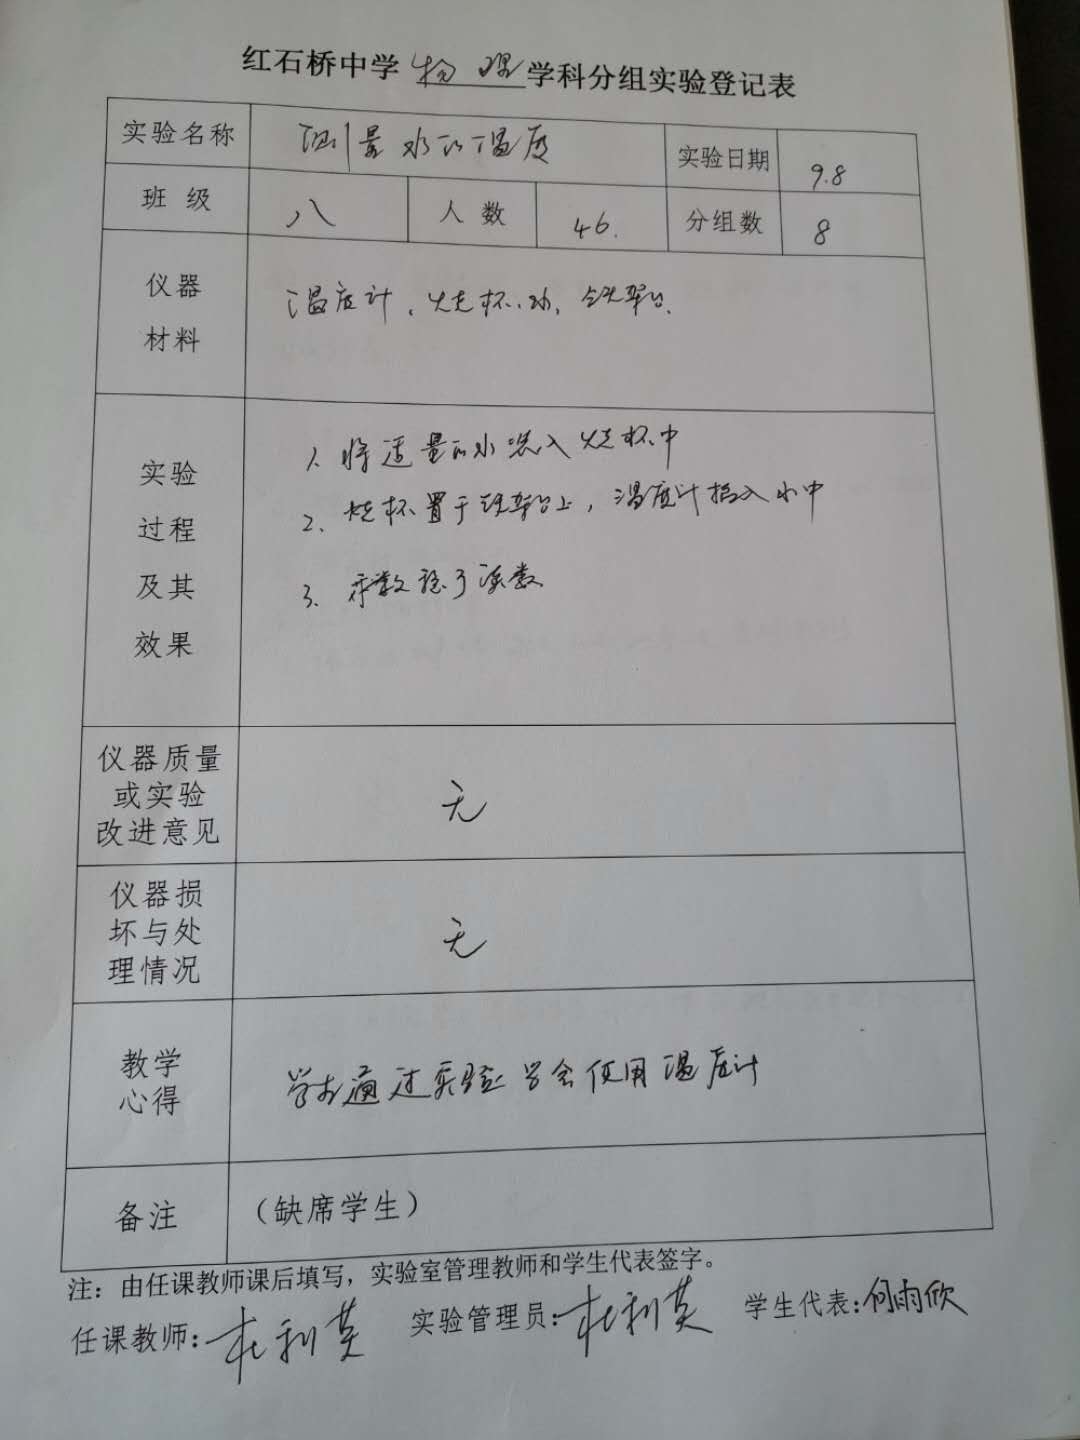 红石桥中学 物理 学科分组实验登记表
实验名称 测量水的温度 实验日期 9.8
班 级 八 人 数 46. 分组数 8
仪器
材料
温度计、烧杯、水、铁架台.
实验
过程
及其
效果
1、将适量的水倒入烧杯中
2、烧杯置于铁架台上,温度计插入水中
3、示数稳了读数
仪器质量
或实验
改进意见
无
仪器损
坏与处
理情况
无
教学
心得
学生通过实验学会使用温度计
备注 (缺席学生)
注: 由任课教师课后填写,实验室管理教师和学生代表签字。
任课教师: 杜利英 实验管理员: 杜利英 学生代表: 何雨欣